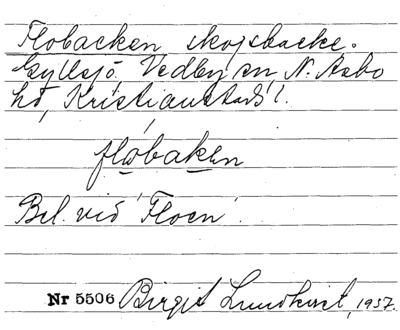 Flobacken skogsbacke.
Gyllsjö. Vedby sn N. Åsbo
hd, Kristianstads l.
flobaken
Bel. vid 'Floen'.
Nr 5506 Birgit Lundkvist, 1937.